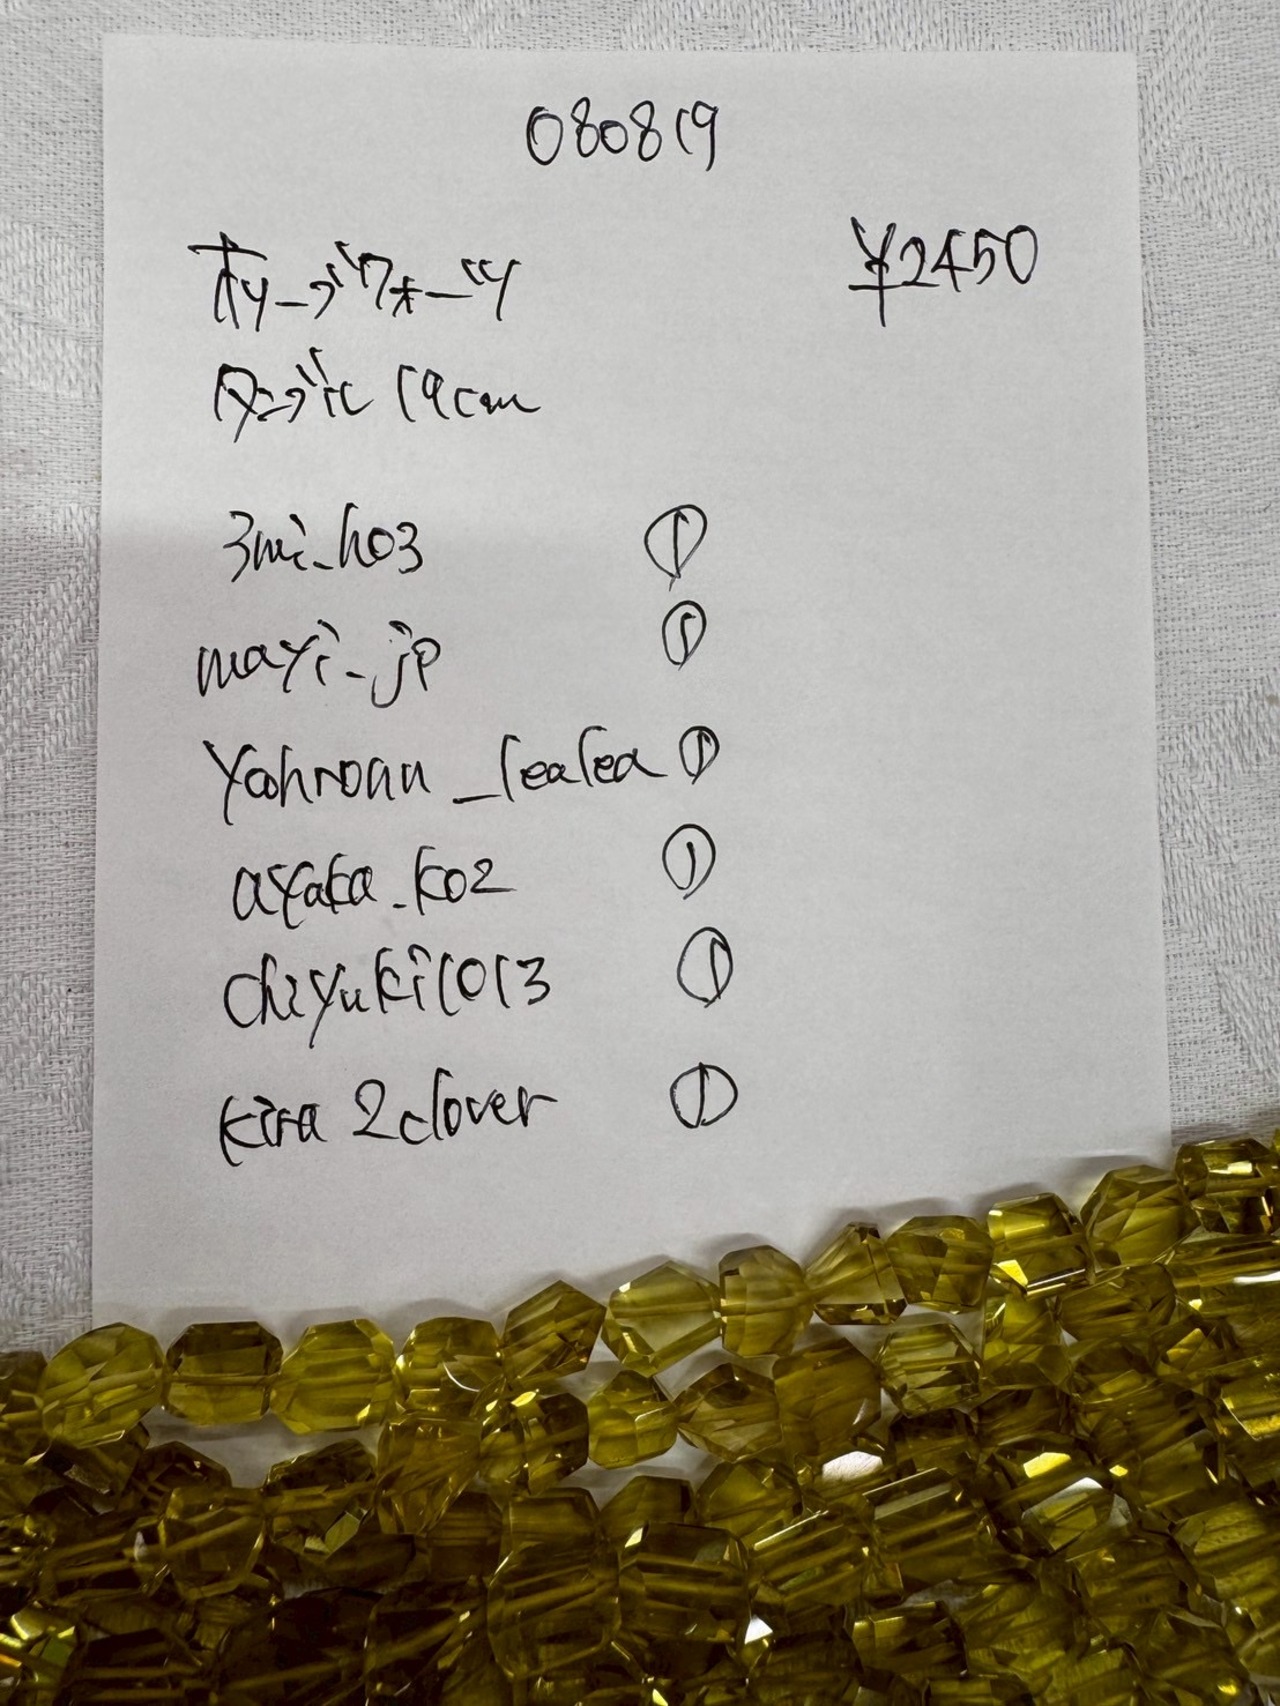 080819
オリーブクォーツ ¥2450
タンブル 19cm
3mi_ho3 ①
mayi_jp ①
yohronu_lealea ①
ayaka_ko2 ①
chiyuki1013 ①
kira2clover ①